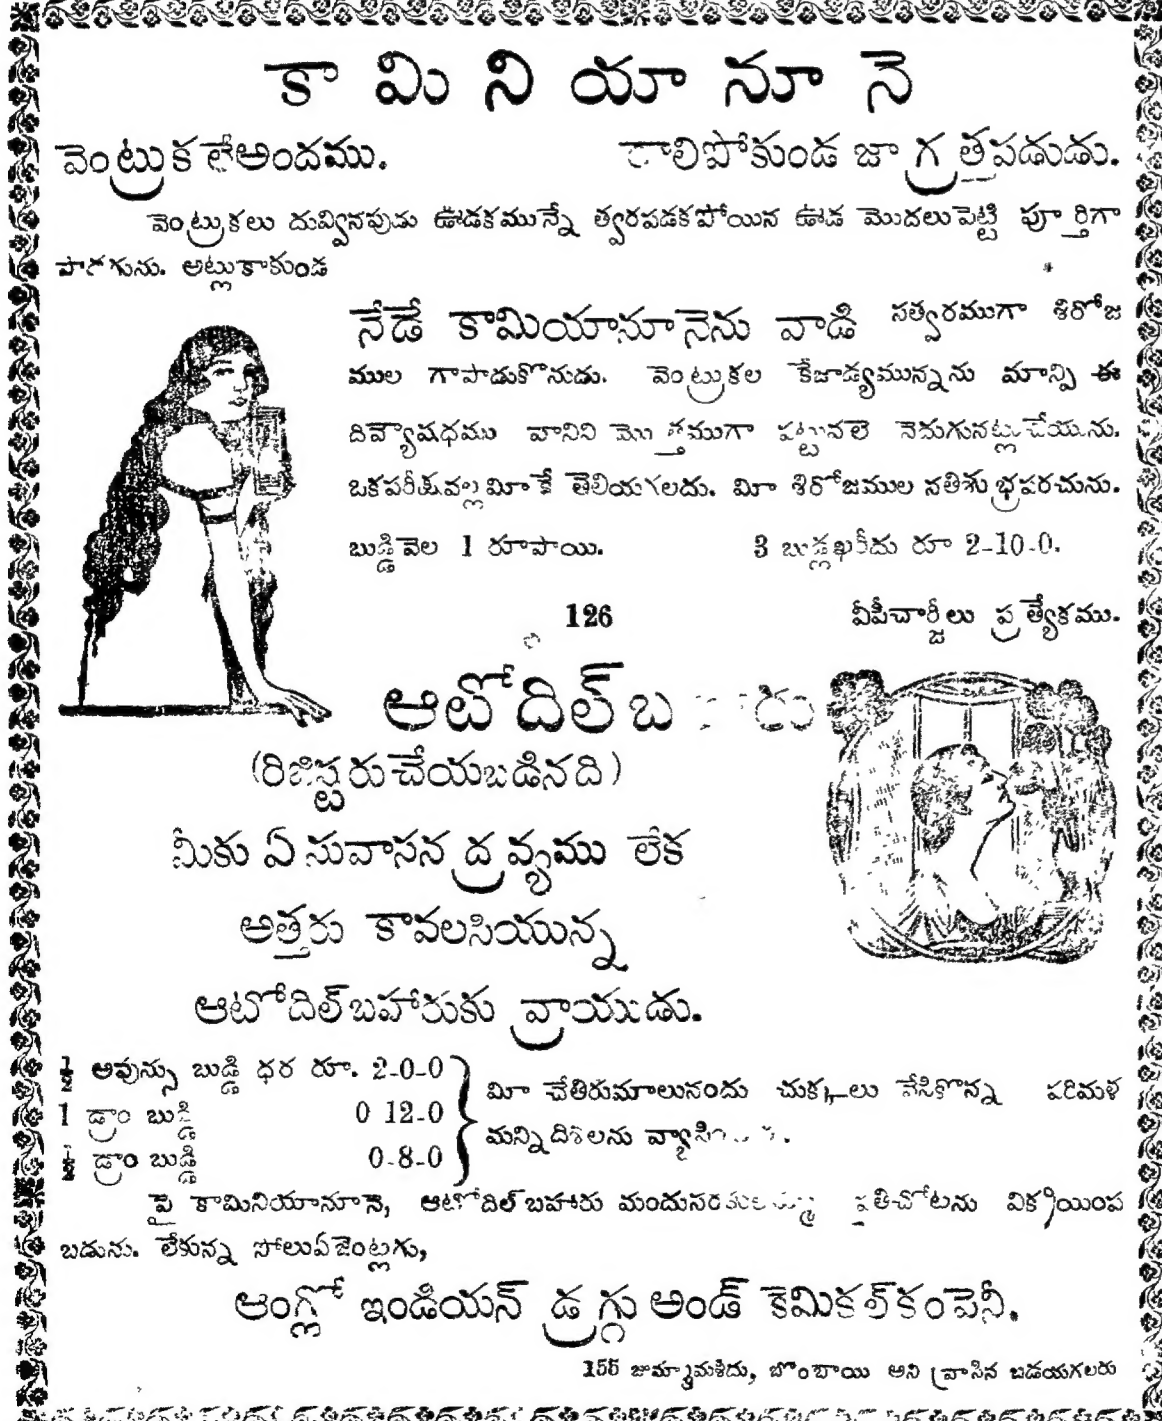 కా మి ని యా నూ నె
వెంట్రుకలేఅందము. రాలిపోకుండ జాగ్రత్తపడుడు.
వెంట్రుకలు దువ్వినపుడు ఊడకమున్నే త్వరపడకపోయిన ఊడ మొదలుపెట్టి పూర్తిగా
అట్లుకాకుండ
నేడే కామియానూనెను వాడి సత్వరముగా శిరోజ
ముల గాపాడుకొనుడు. వెంట్రుకల కేజాడ్యమున్నను మాన్పి ఈ
దివ్యౌషధము వానిని మొత్తముగా పట్టునలె నెదుగునట్లుచేయును.
ఒకపరీక్షవల్ల మీకే తెలియగలదు. మీ శిరోజముల నతిశుభ్రపరచును.
బుడ్డివెల 1 రూపాయి. 3 బుడ్లఖరీదు రూ 2-10-0.
126 వీపీచార్జీలు ప్రత్యేకము.
ఆటోదిల్‌బ
(రిజిస్టరుచేయబడినది)
మీకు ఏ సువాసన ద్రవ్యము లేక
అత్తరు కావలసియున్న
ఆటోదిల్‌బహారుకు వ్రాయుడు.
½ అవున్సు బుడ్డి ధర రూ. 2-0-0
1 డ్రాం బుడ్డి 0 12-0
½ డ్రాం బుడ్డి 0-8-0
మీ చేతిరుమాలునందు చుక్కలు వేసికొన్న పరిమళ
మన్నిదిశలను
పై కామినియానూనె, ఆటోదిల్‌బహారు ప్రతిచోటను విక్రయింప
బడును. లేకున్న సోలుఏజెంట్లగు,
ఆంగ్లో ఇండియన్ డ్రగ్గు అండ్ కెమికల్‌కంపెనీ.
155 జుమ్మామశీదు, బొంబాయి అని వ్రాసిన బడయగలరు